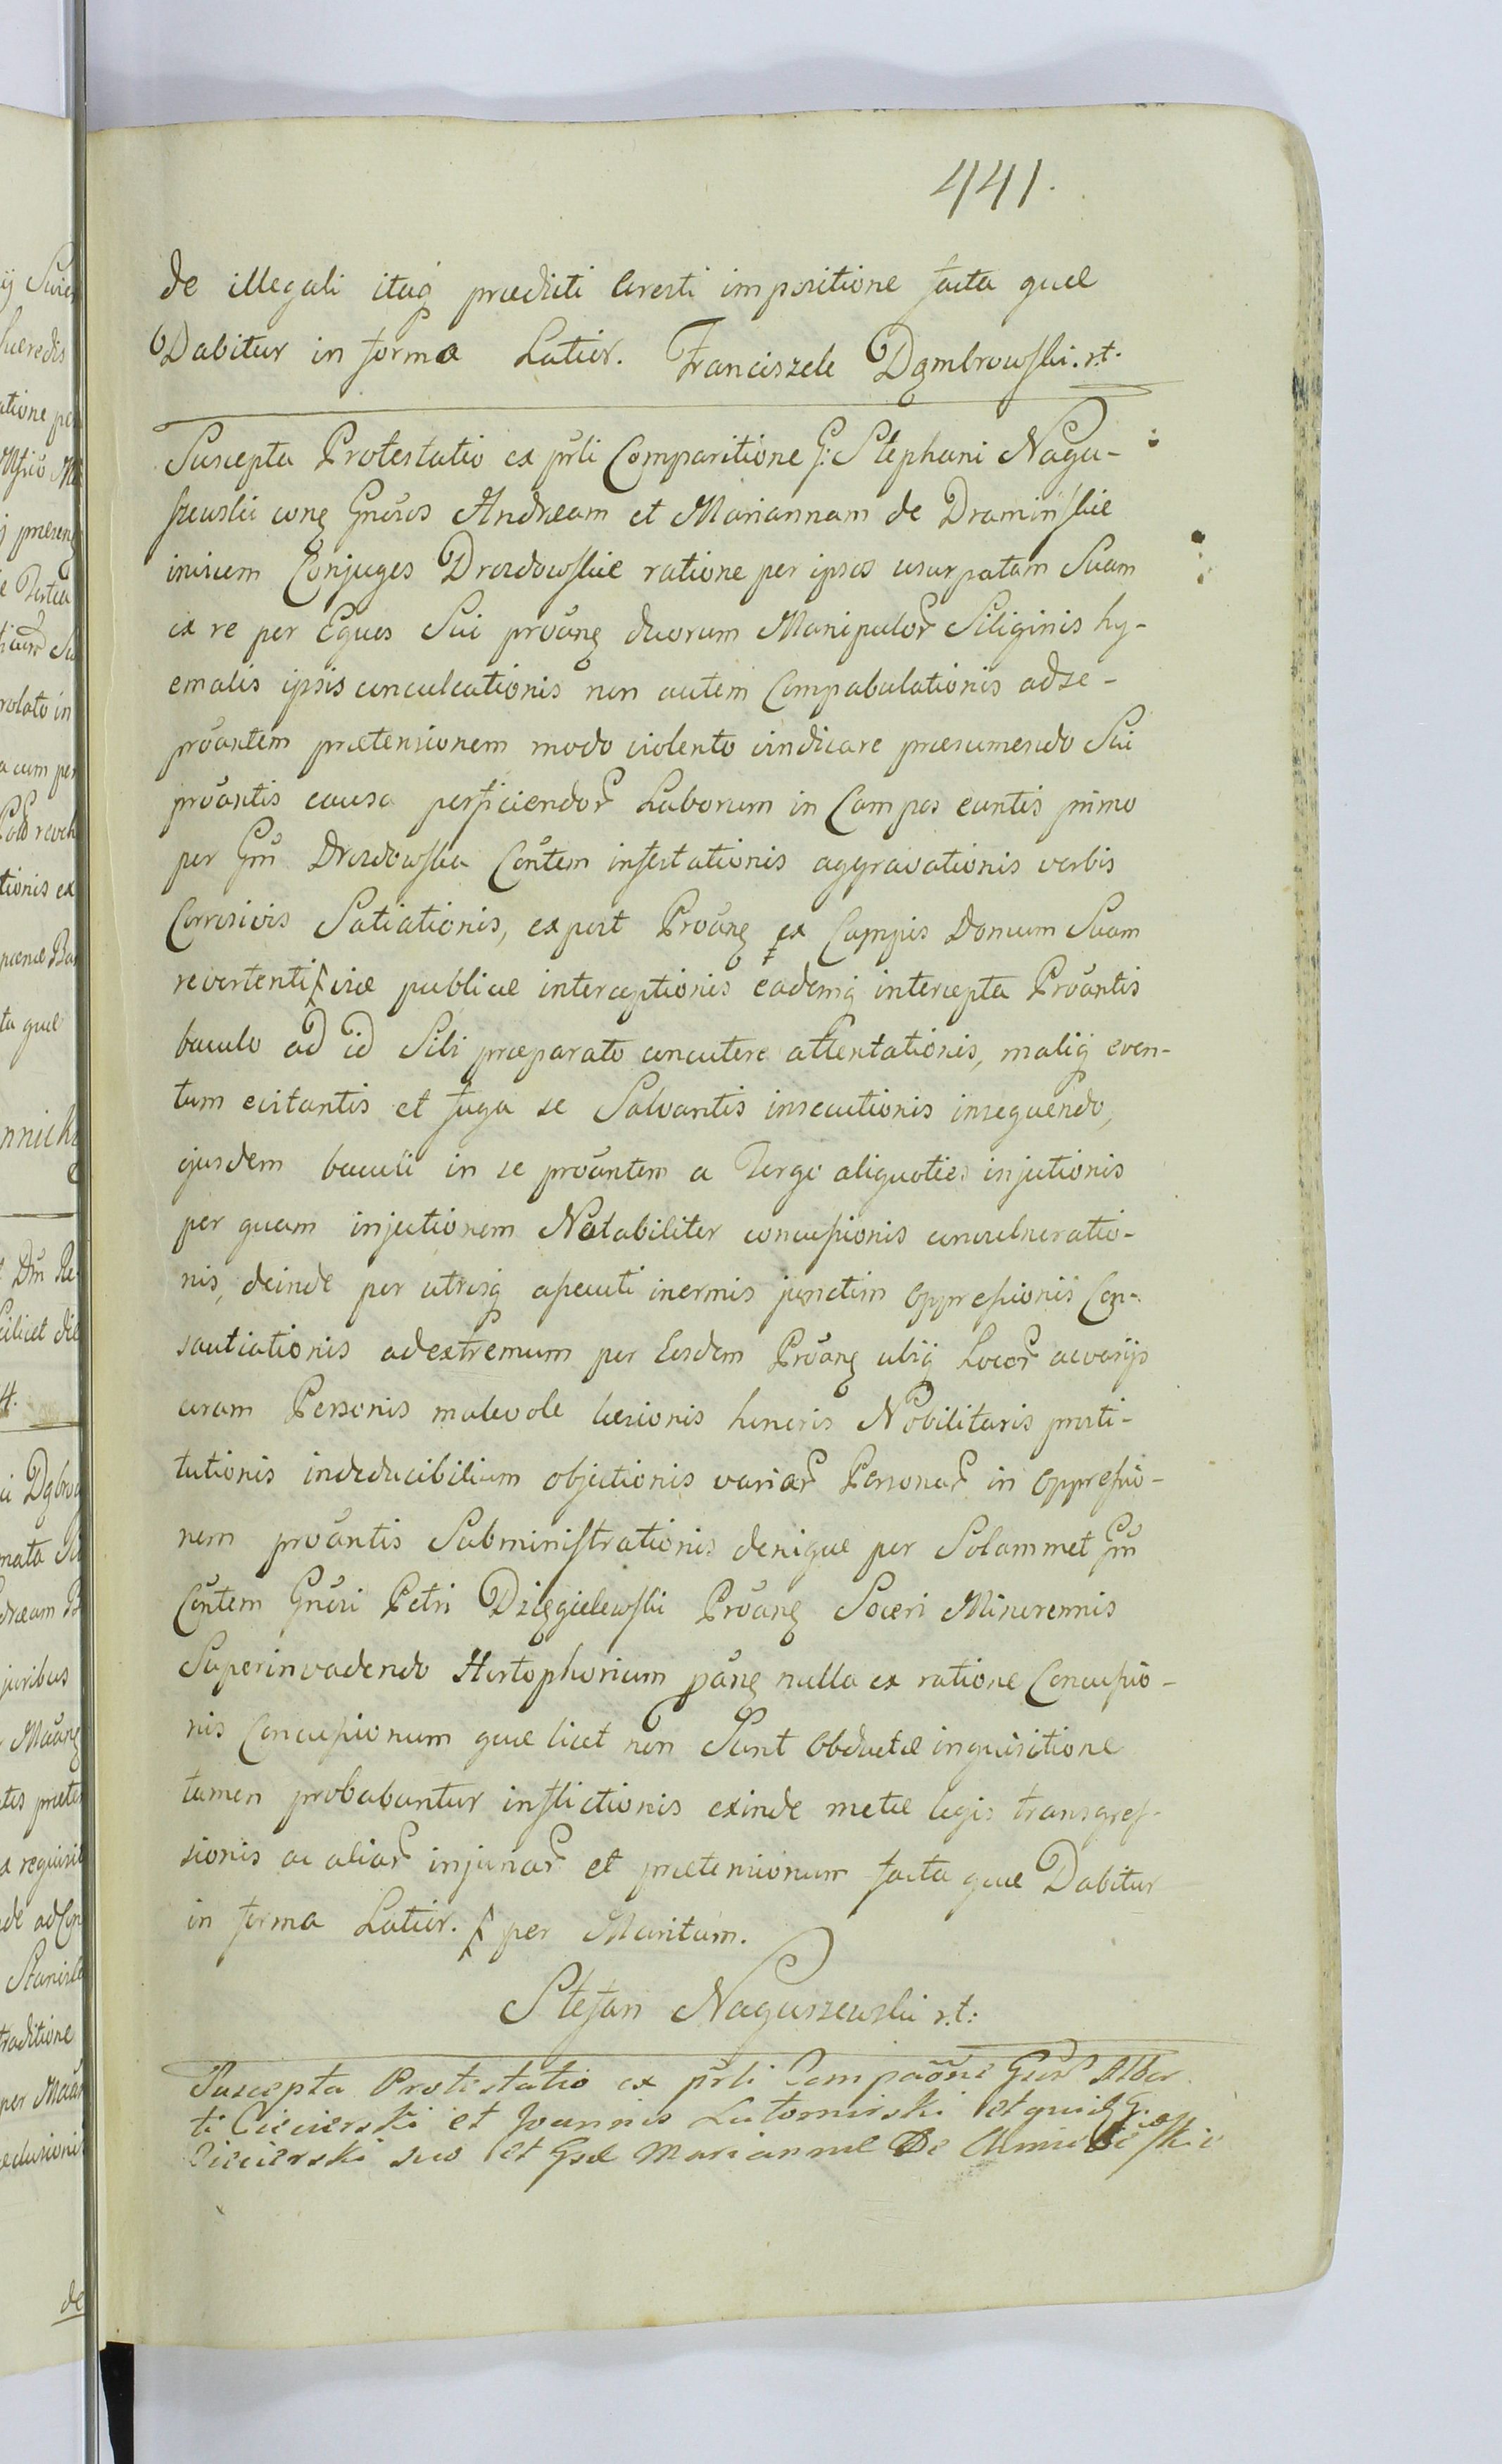 441.
de illegali itaq prædicti Aresti impositione facta quæ
Dabitur in forma Latior. Franciszek Dąmbrowski. r.t.
Suscepta Protestatio ex prli Comparitione G: Stephani Nagu-
szewski conq Gnosos Andream et Mariannam de Dramińskie
invicem Conjuges Drozdowskie ratione per ipsos usurpatam Suam
ex re per Equos Sui provanq duorum Manipulor Siliginis hy-
emalis ipsis conculcationis non autem Compabulationis adse-
provantem prætensionem modo violento vindicare præsumendo Sui
provantis causa perficiendor Laborum in Campos euntis primo
per Gm Drozdowska Contem infestationis aggravationis verbis
Corrosivis Satiationis, expost Provanq ex Campis Domum Suam
revertenti viæ publicæ interceptionis eademq intercepta Provantis
baculo ad id Sibi præparato concutere attentationis, maliq even-
tum evitantis et fuga se Salvantis insecutionis insequendo,
ejusdem baculi in se provantem a Tergo aliquoties injectionis
per quam injectionem Notabiliter concussionis convulneratio-
nis, deinde per utrosq assecuti inermis junctim oppressionis Con-
sautiationis adextremum per Eosdem Provanq ubiq Locor ac varijs
coram Personis malevole læsionis honoris Nobilitaris prosti-
tutionis indeducibilium objectionis variar Personar in oppressio-
nem provantis Subministrationis denique per Solammet Gm
Contem Gnosi Petri Dzięgielewski Provanq Soceri Minorennis
Superinvadendo Hortophorium panq nulla ex ratione Concussio-
nis Concussionum quæ licet non Sunt Obductæ inquisitione
tamen probabuntur inflictionis exinde metæ legis transgres-
sionis ac aliar injuriar et prætensionum facta quæ Dabitur
in forma Latior. per Maritum.
Stefan Naguszewski r.t:
Suscepta Protestatio ex prli Compaone Gnor Alber
ti Ciecierski et Joannis Lutomirski et quidq G.
Ciecierski suo et Gsæ Mariannæ De